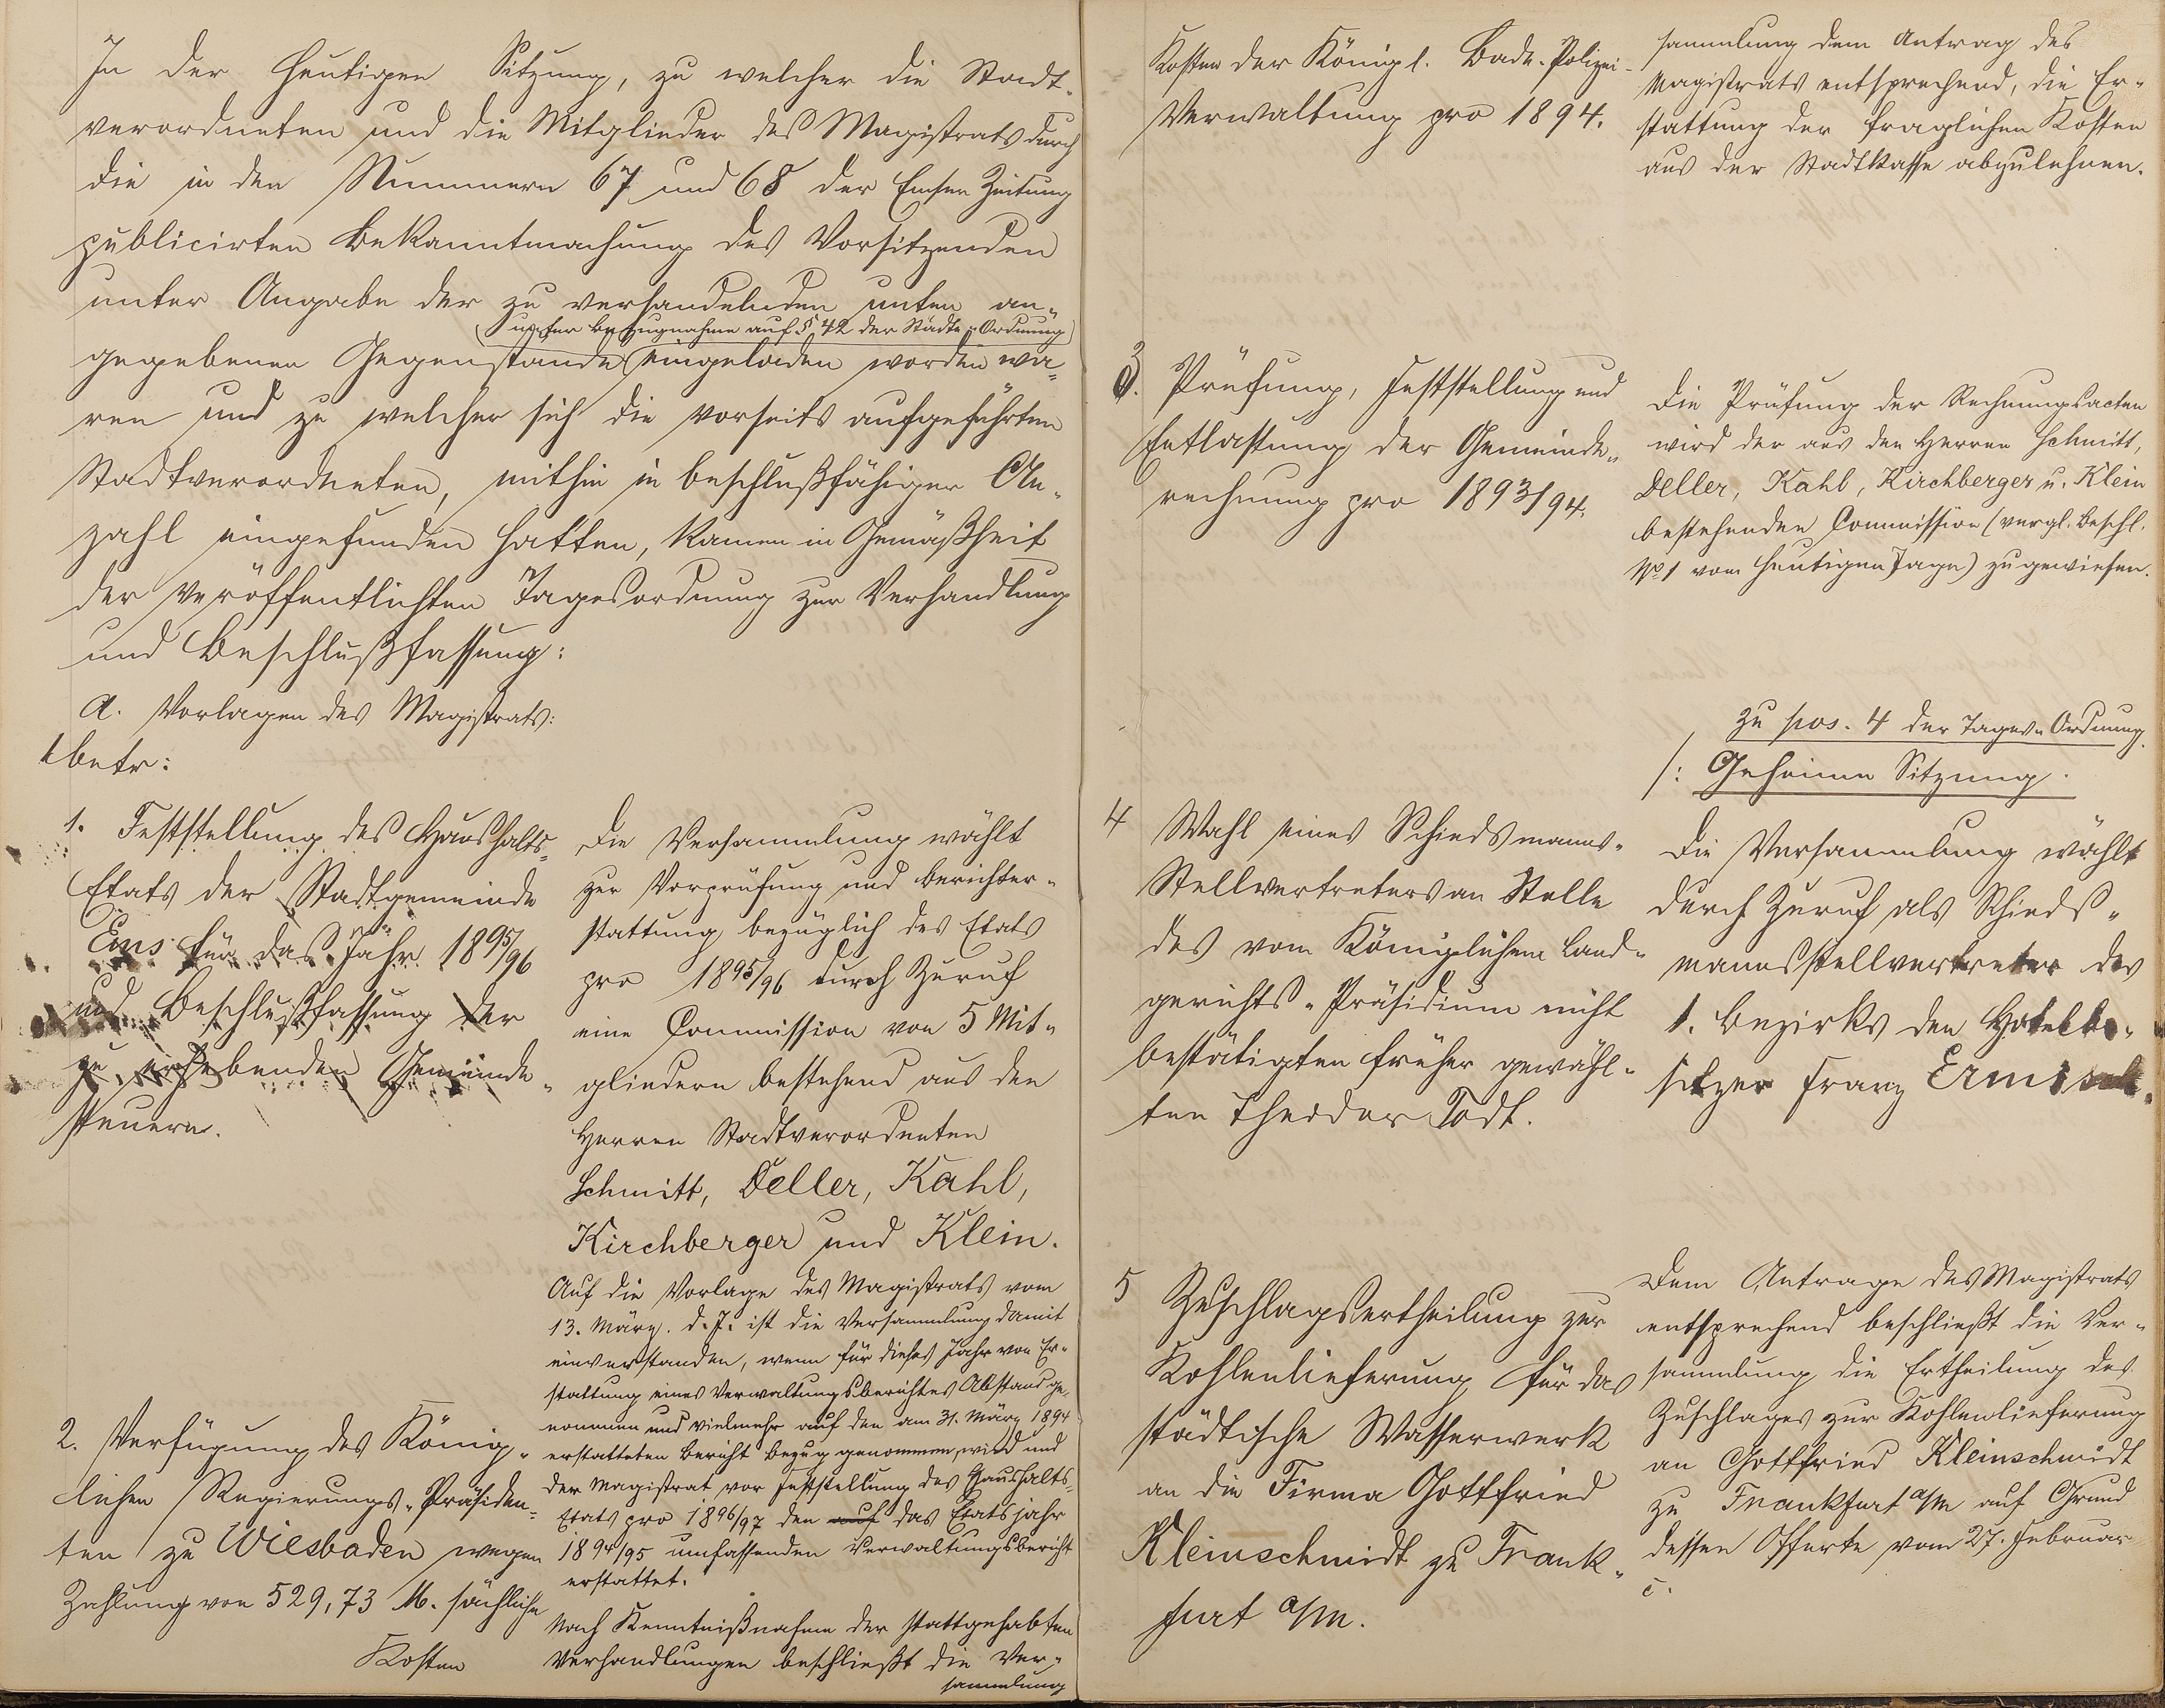 In der heutigen Sitzung, zu welcher die Stadt-
verordneten und die Mitglieder des Magistrats durch
die in den Nummern 67 und 68 der Emser Zeitung
publicirten Bekanntmachung des Vorsitzenden
unter Angabe der zu verhandelnden unten an-
(unter Bezugnahme auf § 42 der Städte-Ordnung)
gegebenen Gegenstände eingeladen worden wa-
ren und zu welcher sich die vorseits aufgeführten
Stadtverordneten, mithin in beschlußfähiger An-
zahl eingefunden hatten, kamen in Gemäßheit
der veröffentlichten Tagesordnung zur Verhandlung
und Beschlußfassung:
A. Vorlagen des Magistrats:
betr:
1. Feststellung des Haushalts-
Etats der Stadtgemeinde
Ems für das Jahr 1895/96
und Beschlußfassung der
zu erhebenden Gemeinde-
steuern.
Die Versammlung wählt
zur Vorprüfung und Berichter-
stattung bezüglich des Etats
pro 1895/96 durch Zuruf
eine Commission von 5 Mit-
gliedern bestehend aus den
Herren Stadtverordneten
Schmitt, Deller, Kahl,
Kirchberger und Klein.
Auf die Vorlage des Magistrats vom
13. März d. J. ist die Versammlung damit
einverstanden, wenn für dieses Jahr von Er-
stattung eines Verwaltungsberichtes Abstand ge-
nommen und vielmehr auf den am 31. März 1894
erstatteten Bericht Bezug genommen wird und
der Magistrat vor Feststellung des Haushalts-
Etats pro 1896/97 den auf das Etatsjahr
1894/95 umfassenden Verwaltungsbericht
erstattet.
2. Verfügung des König-
lichen Regierungs-Präsiden-
ten zu Wiesbaden wegen
Zahlung von 529,73 M. sächliche
Kosten
Nach Kenntnißnahme der stattgehabten
Verhandlungen beschließt die Ver-
sammlung
Kosten der Königl. Bade-Polizei-
Verwaltung pro 1894.
sammlung dem Antrag des
Magistrats entsprechend, die Er-
stattung der fraglichen Kosten
aus der Stadtkasse abzulehnen.
3. Prüfung, Feststellung und
Entlastung der Gemeinde-
rechnung pro 1893/94.
Die Prüfung der Rechnungsacten
wird der aus den Herren Schmitt,
Deller, Kahl, Kirchberger u. Klein
bestehenden Commission (vergl. Beschl.
No 1 vom heutigen Tage) zugewiesen.
zu pos. 4 der Tages-Ordnung.
/: Geheime Sitzung.
4 Wahl eines Schiedsmanns-
Stellvertreters an Stelle
des vom Königlichem Land-
gerichts-Präsidium nicht
bestätigten früher gewähl-
ten Theodor Todt.
Die Versammlung wählt
durch Zuruf als Schieds-
mannsstellvertreter des
1. Bezirks den Hotelbe-
sitzer Franz Ermisch.
5 Zuschlagsertheilung zur
Kohlenlieferung für das
städtische Wasserwerk
an die Firma Gottfried
Kleinschmidt zu Frank-
furt a/M.
Dem Antrage des Magistrats
entsprechend beschließt die Ver-
sammlung die Ertheilung des
Zuschlages zur Kohlenlieferung
an Gottfried Kleinschmidt
zu Frankfurt a/M auf Grund
dessen Offerte vom 27. Februar
c.